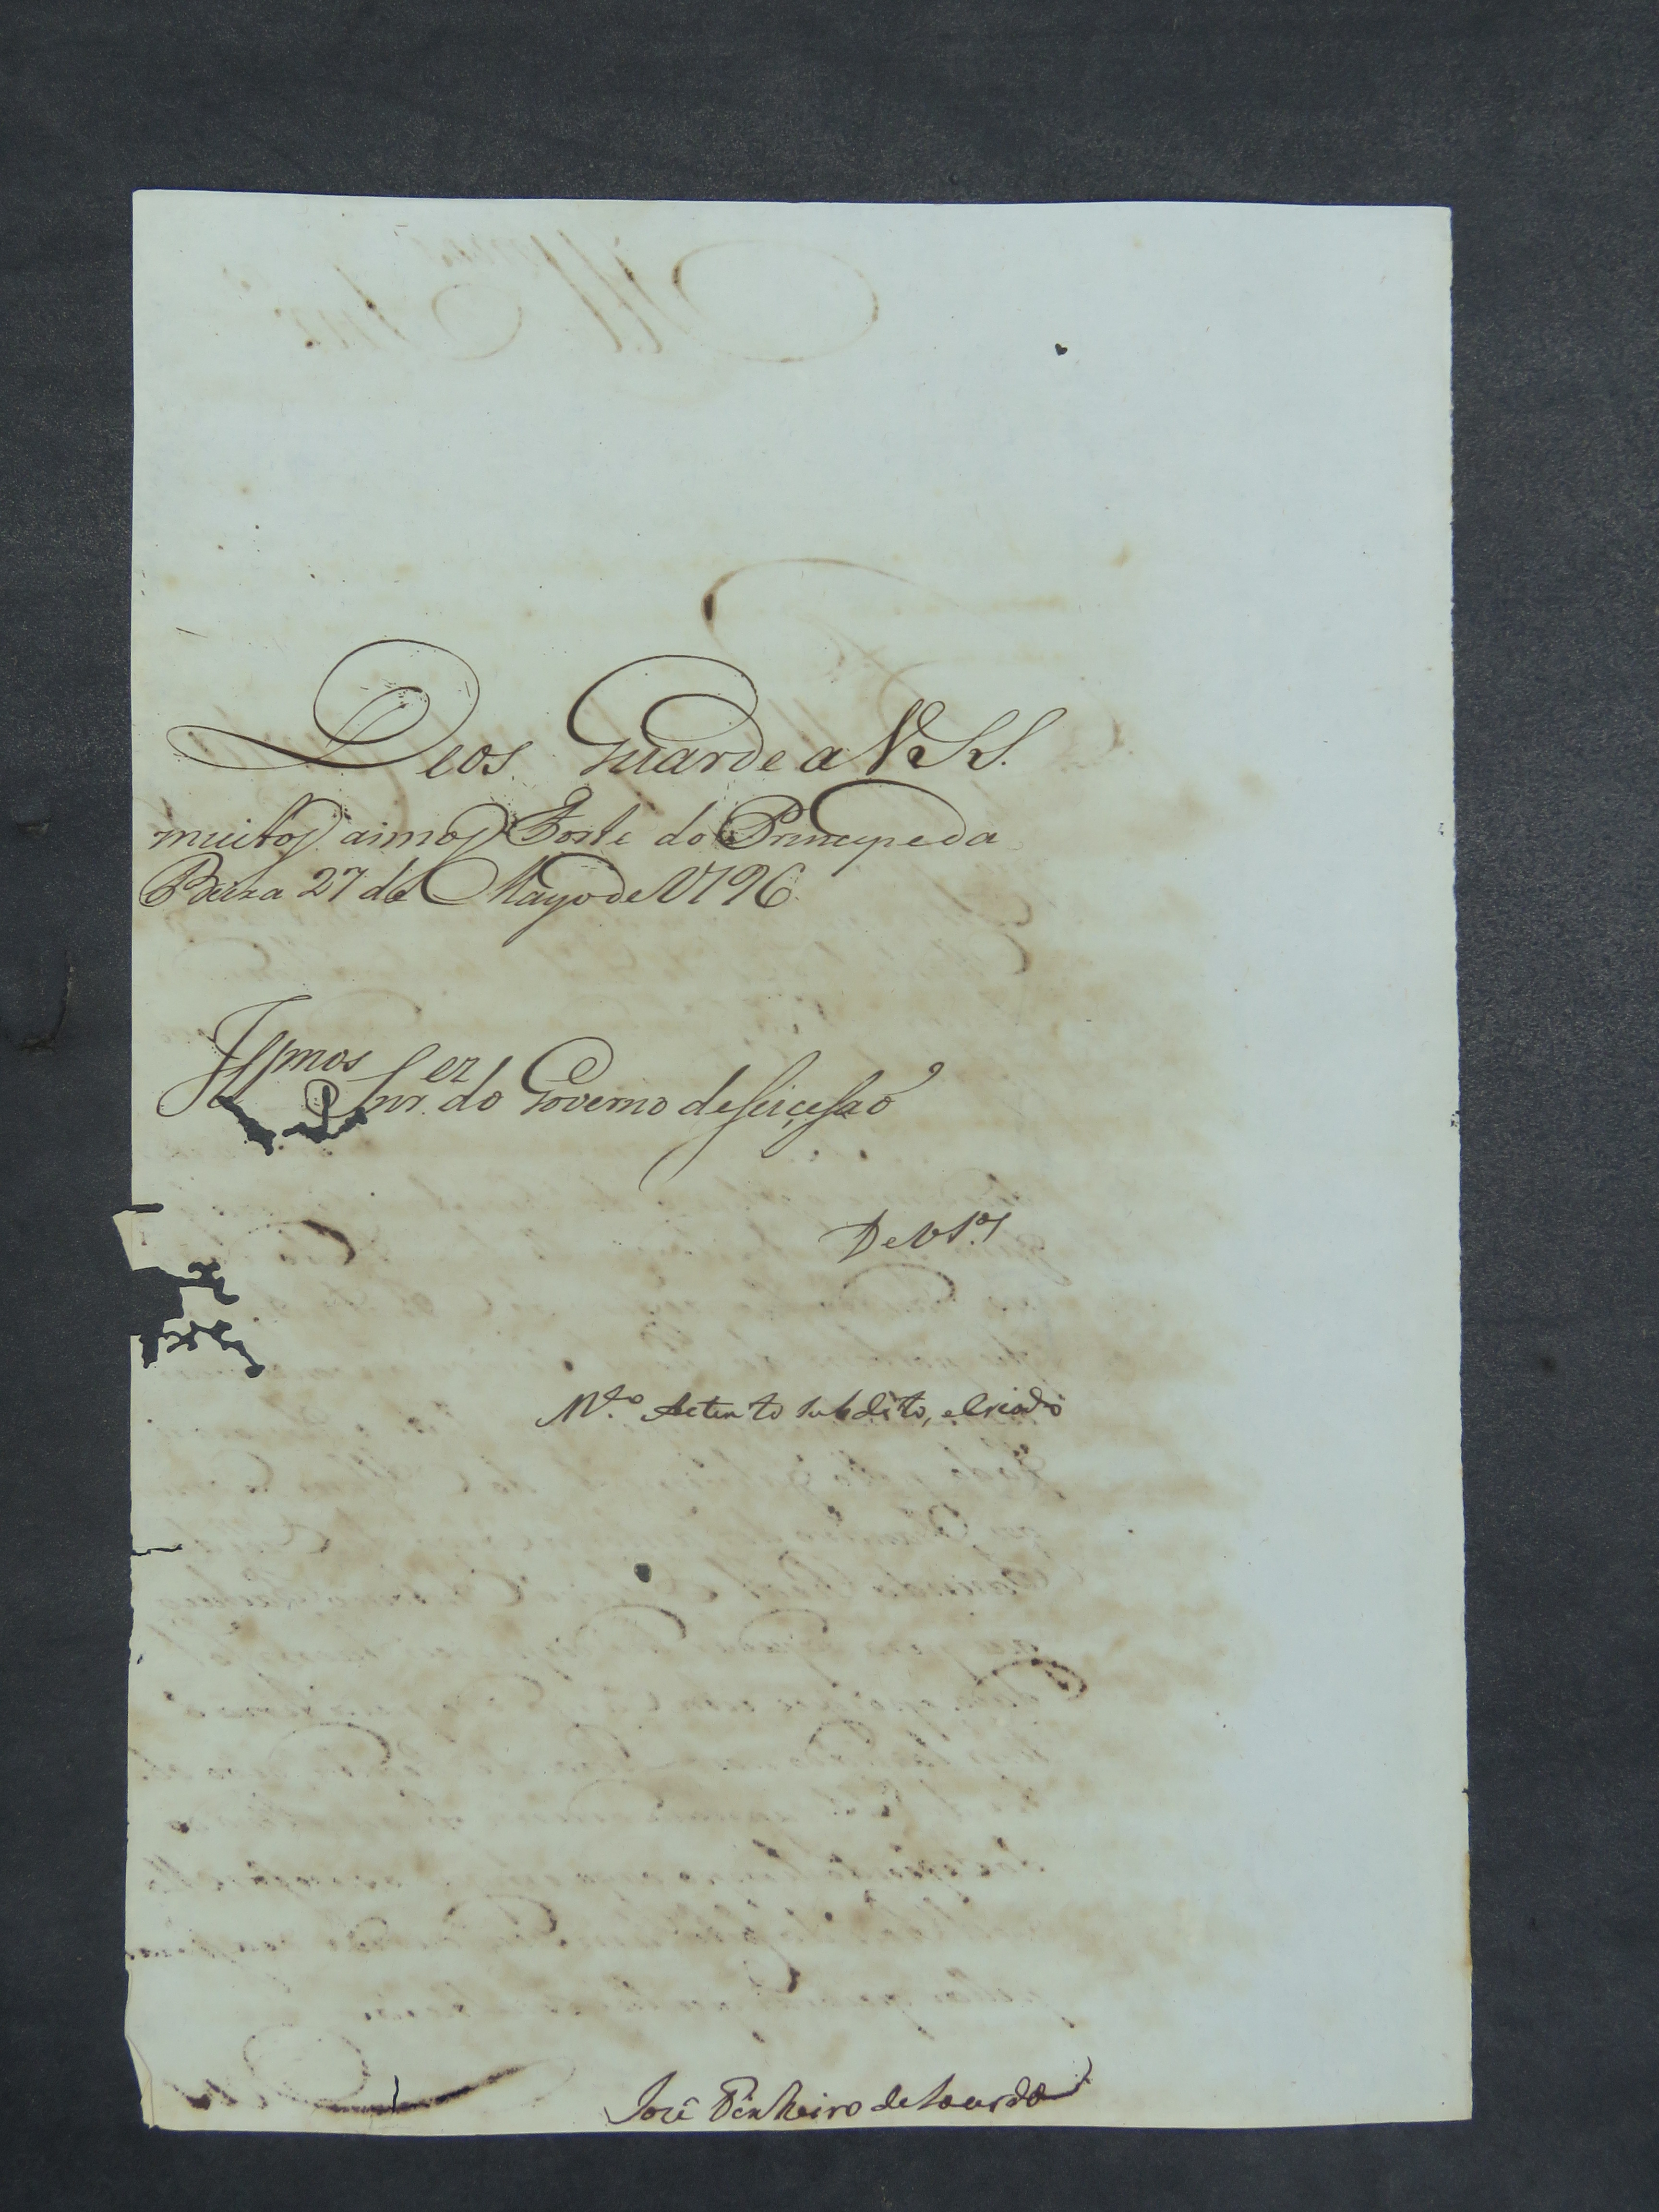 Deos Guarde a V S S.
muitos annos Forte do Principe da
Beira 27 de Mayo de 1796
Ill.mos Snr.es do Governo de Sucessaõ
De V S.as
M.to Actento Subdito, e Criado
José Pinheiro de Lacerda